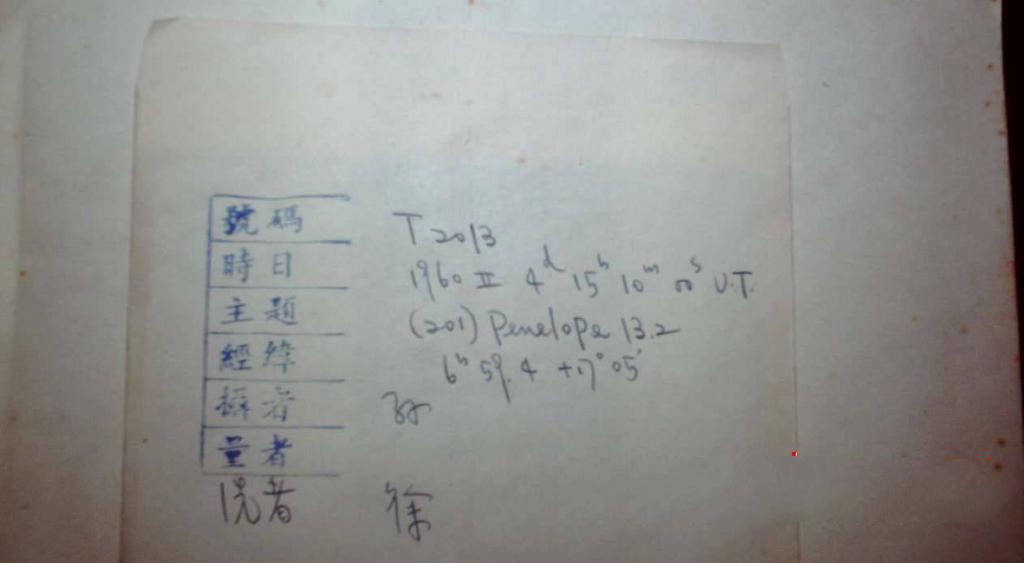 號碼 T2013
時日 1960 II 4ᵈ 15ʰ 10ᵐ 00ˢ U.T.
主題 (201) Penelope 13.2
經緯 6ʰ 59.4 +17°05'
攝者 孙
量者
洗者 徐